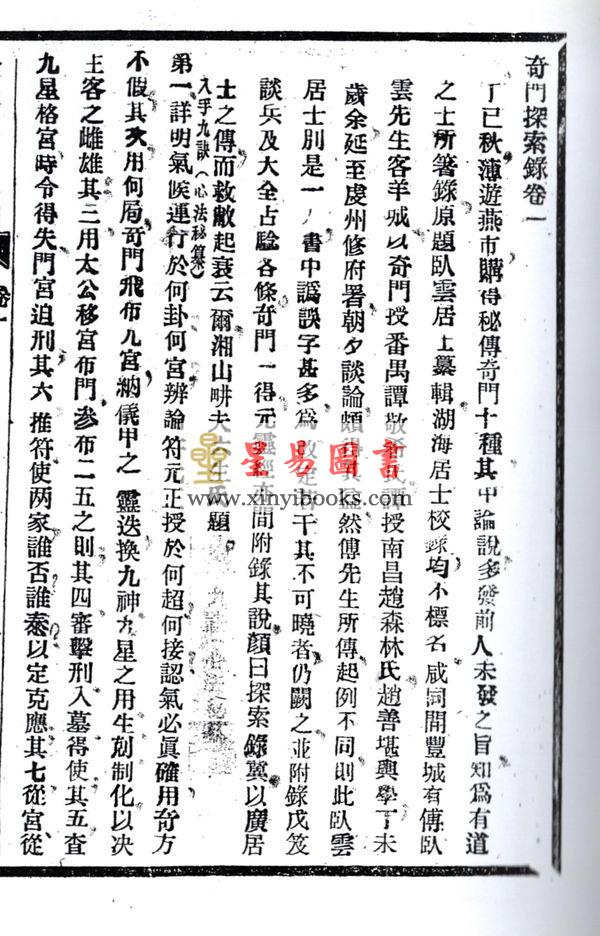 奇門探索錄卷一
丁巳秋薄遊燕市購得秘傳奇門十種其中論說多發前人未發之旨知為有道
之士所箸錄原題臥雲居士纂輯湖海居士校錄均不標名咸同間豐城有傅臥
雲先生客羊城以奇門授番禺譚敬
授南昌趙森林氏趙善堪輿學丁未
歲余延至虔州修府署朝夕談論頗得其
然傅先生所傳起例不同則此臥雲
居士別是一人書中譌誤字甚多為改定
干其不可曉者仍闕之並附錄戊笈
談兵及大全占驗各條奇門一得元靈經
間附錄其說顏曰探索錄冀以廣居
士之傳而救敝起衰云爾湘山畊夫
題
入手九訣(心法秘纂)
第一詳明氣候運行於何卦何宮辨論符元正授於何超何接認氣必眞確用奇方
不假其次用何局奇門飛布九宮納儀甲之靈迭換九神九星之用生剋制化以決
主客之雌雄其三用太公移宮布門參布二五之則其四審擊刑入墓得使其五查
九星格宮時令得失門宮迫刑其六推符使两家誰否誰泰以定克應其七從宮從
卷一
星易圖書
www.xinyibooks.com